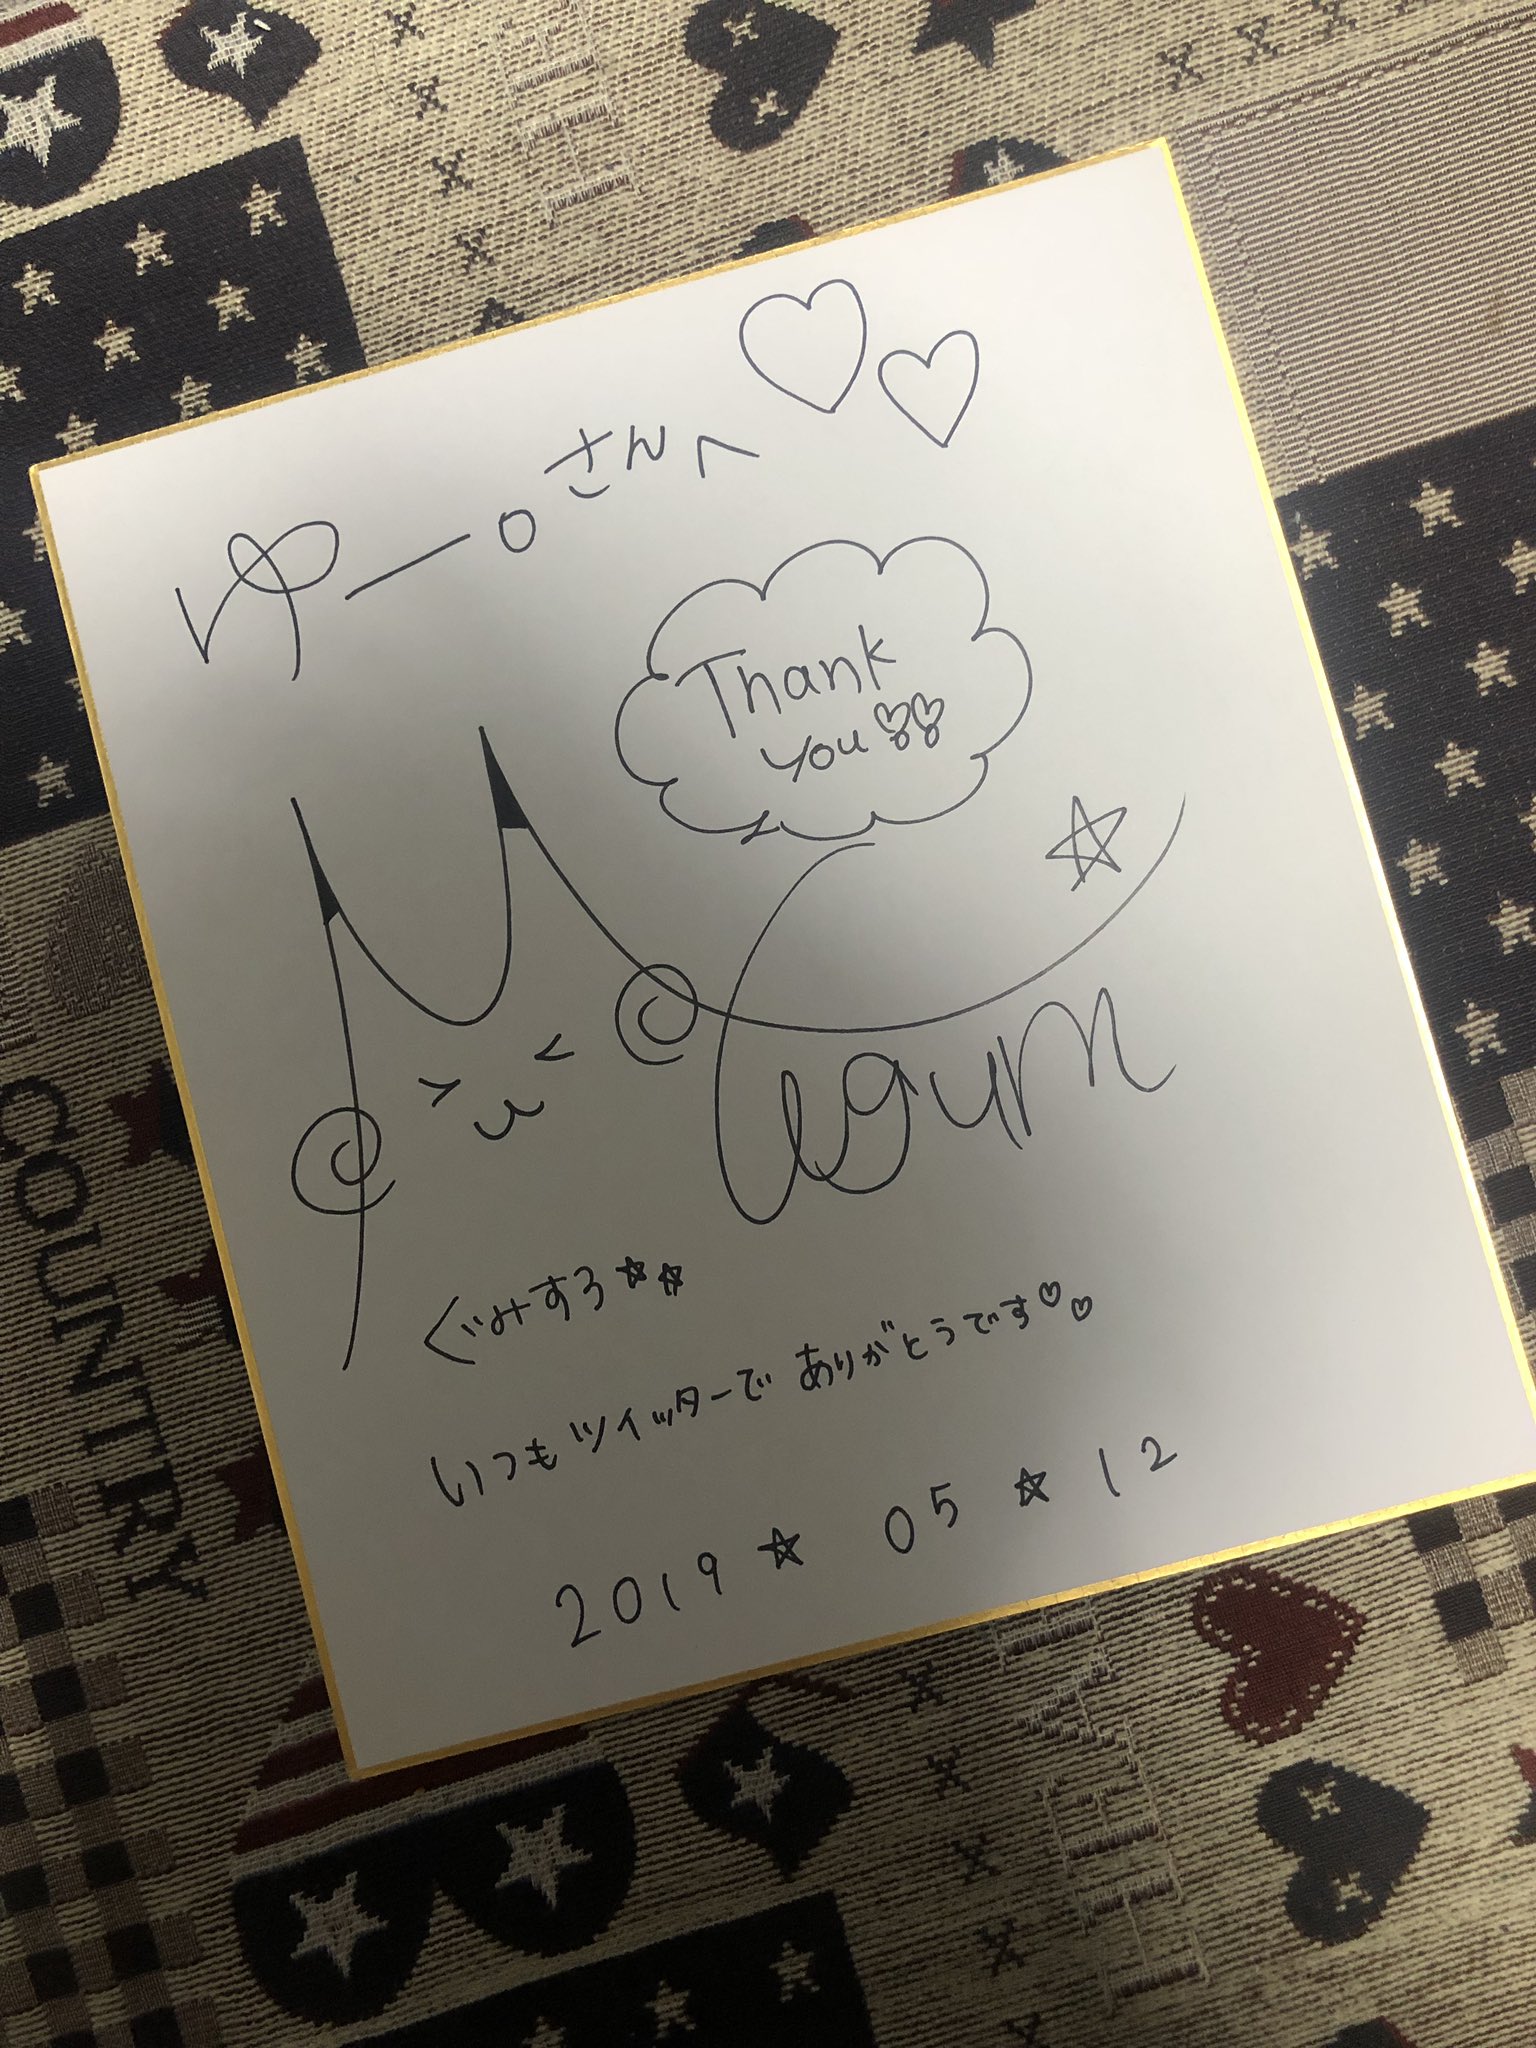 ゆーoさんへ
Thank
you
Megum
ぐみすろ☆☆
いつもツイッターで ありがとうです♡♡
2019 ☆ 05 ☆ 12
COUNTRY